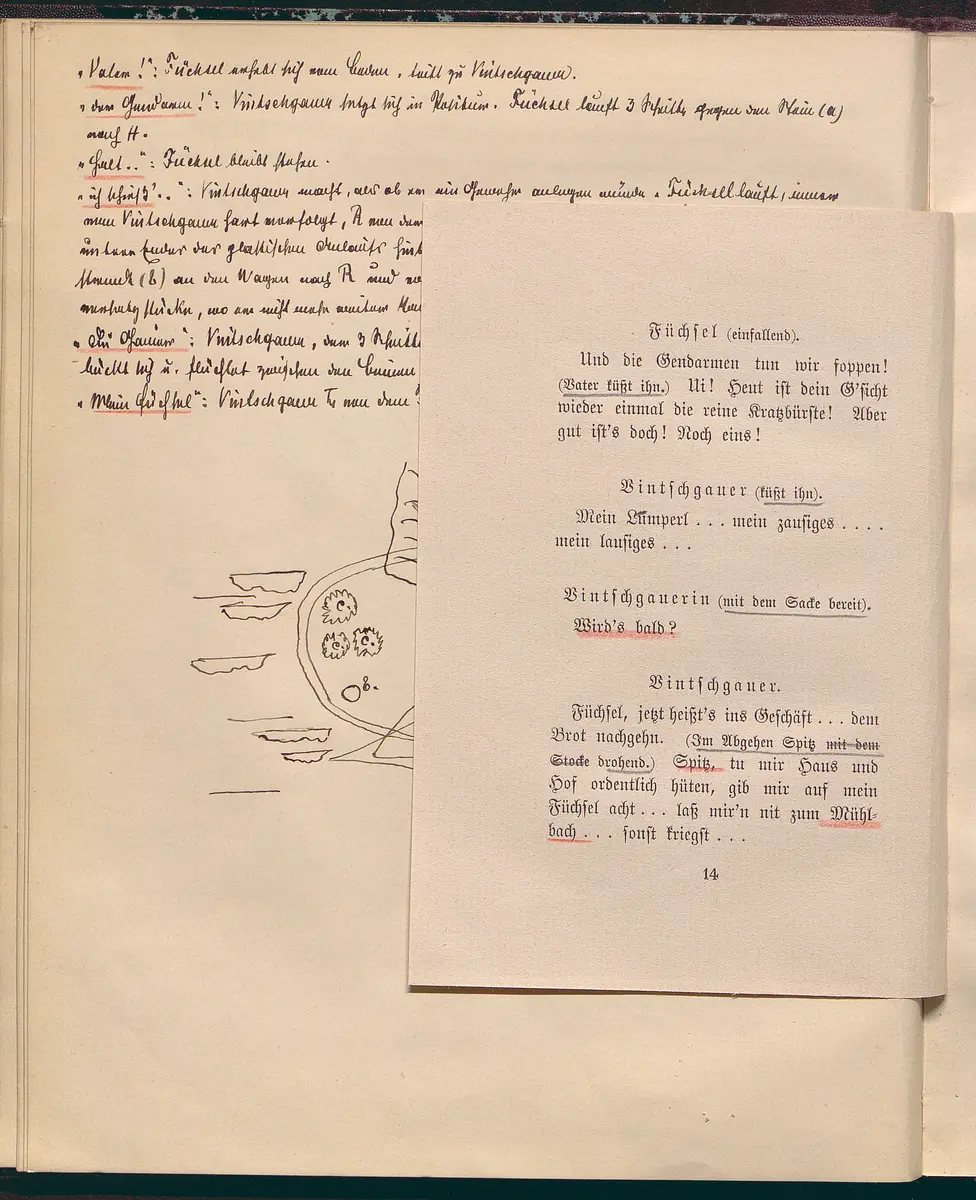 „Vater!“: Füchsel erhebt sich vom Boden, tritt zu Vintschgauer.
„den Gendarm!“: Vintschgauer setzt sich in Positur. Füchsel lauft 3 Schritte gegen den Stein (a)
nach H.
„Halt..“: Füchsel bleibt stehen.
„ich schieß'..“: Vintschgauer macht, als ob er ein Gewehr anlegen würde. Füchsel lauft, immer
von Vintschgauer hart verfolgt, R von dem
untere Ende des plastischen Anlaufs
(b) an den Wagen nach R und
versatzstücke, wo er nicht mehr weiter
Vintschgauer, der 3 Schritte
bückt sich u. flüchtet zwischen den Beinen
„Mein Füchsel“: Vintschgauer von dem
c.
c.
c.
b.
Füchsel (einfallend).
Und die Gendarmen tun wir foppen!
(Vater küßt ihn.) Ui! Heut ist dein G'sicht
wieder einmal die reine Kratzbürste! Aber
gut ist's doch! Noch eins!
Vintschgauer (küßt ihn).
Mein Lumperl . . . mein zausiges . . . .
mein lausiges . . .
Vintschgauerin (mit dem Sacke bereit).
Wird's bald?
Vintschgauer.
Füchsel, jetzt heißt's ins Geschäft . . . dem
Brot nachgehn. (Im Abgehen Spitz mit dem
Stocke drohend.) Spitz, tu mir Haus und
Hof ordentlich hüten, gib mir auf mein
Füchsel acht . . . laß mir'n nit zum Mühl-
bach . . . sonst kriegst . . .
14